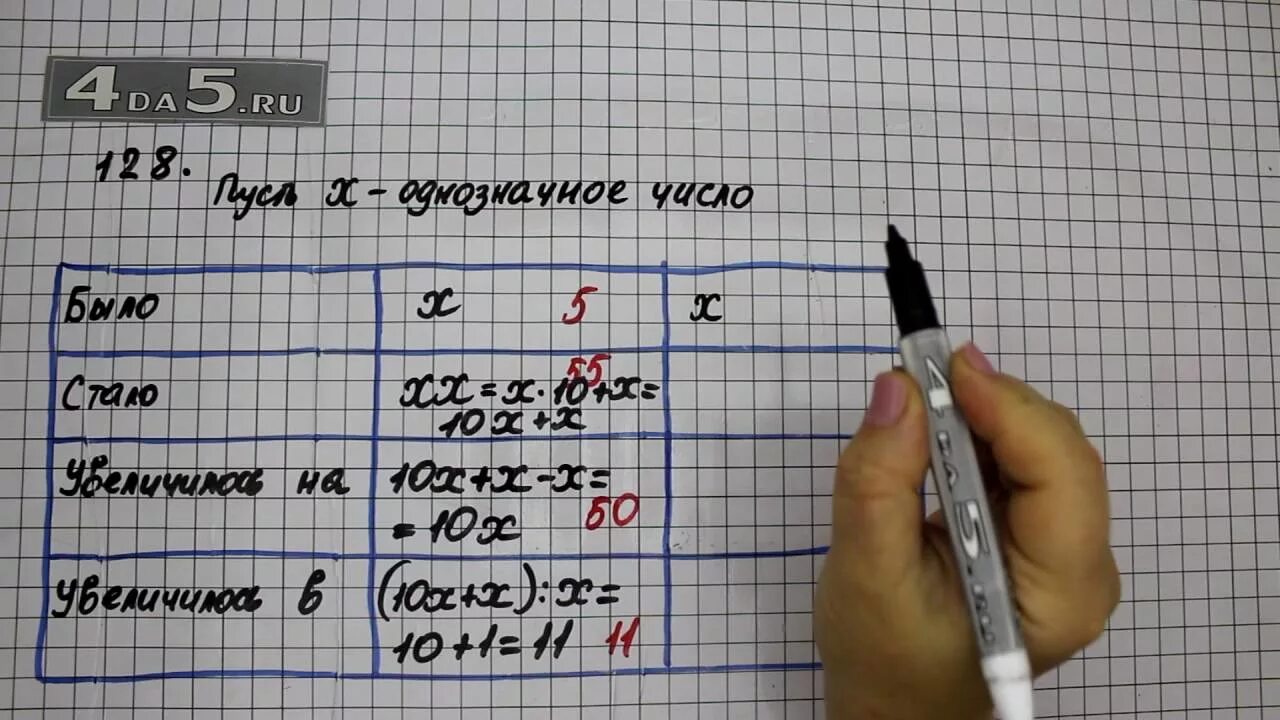 4DA5.RU
128.
Пусть х - однозначное число
Было
х 5
х
Стало
55
хх = х · 10 + х =
10х + х
Увеличилось на
10х + х - х =
= 10х 50
Увеличилось в
(10х + х) : х =
10 + 1 = 11 11
4DA5.RU